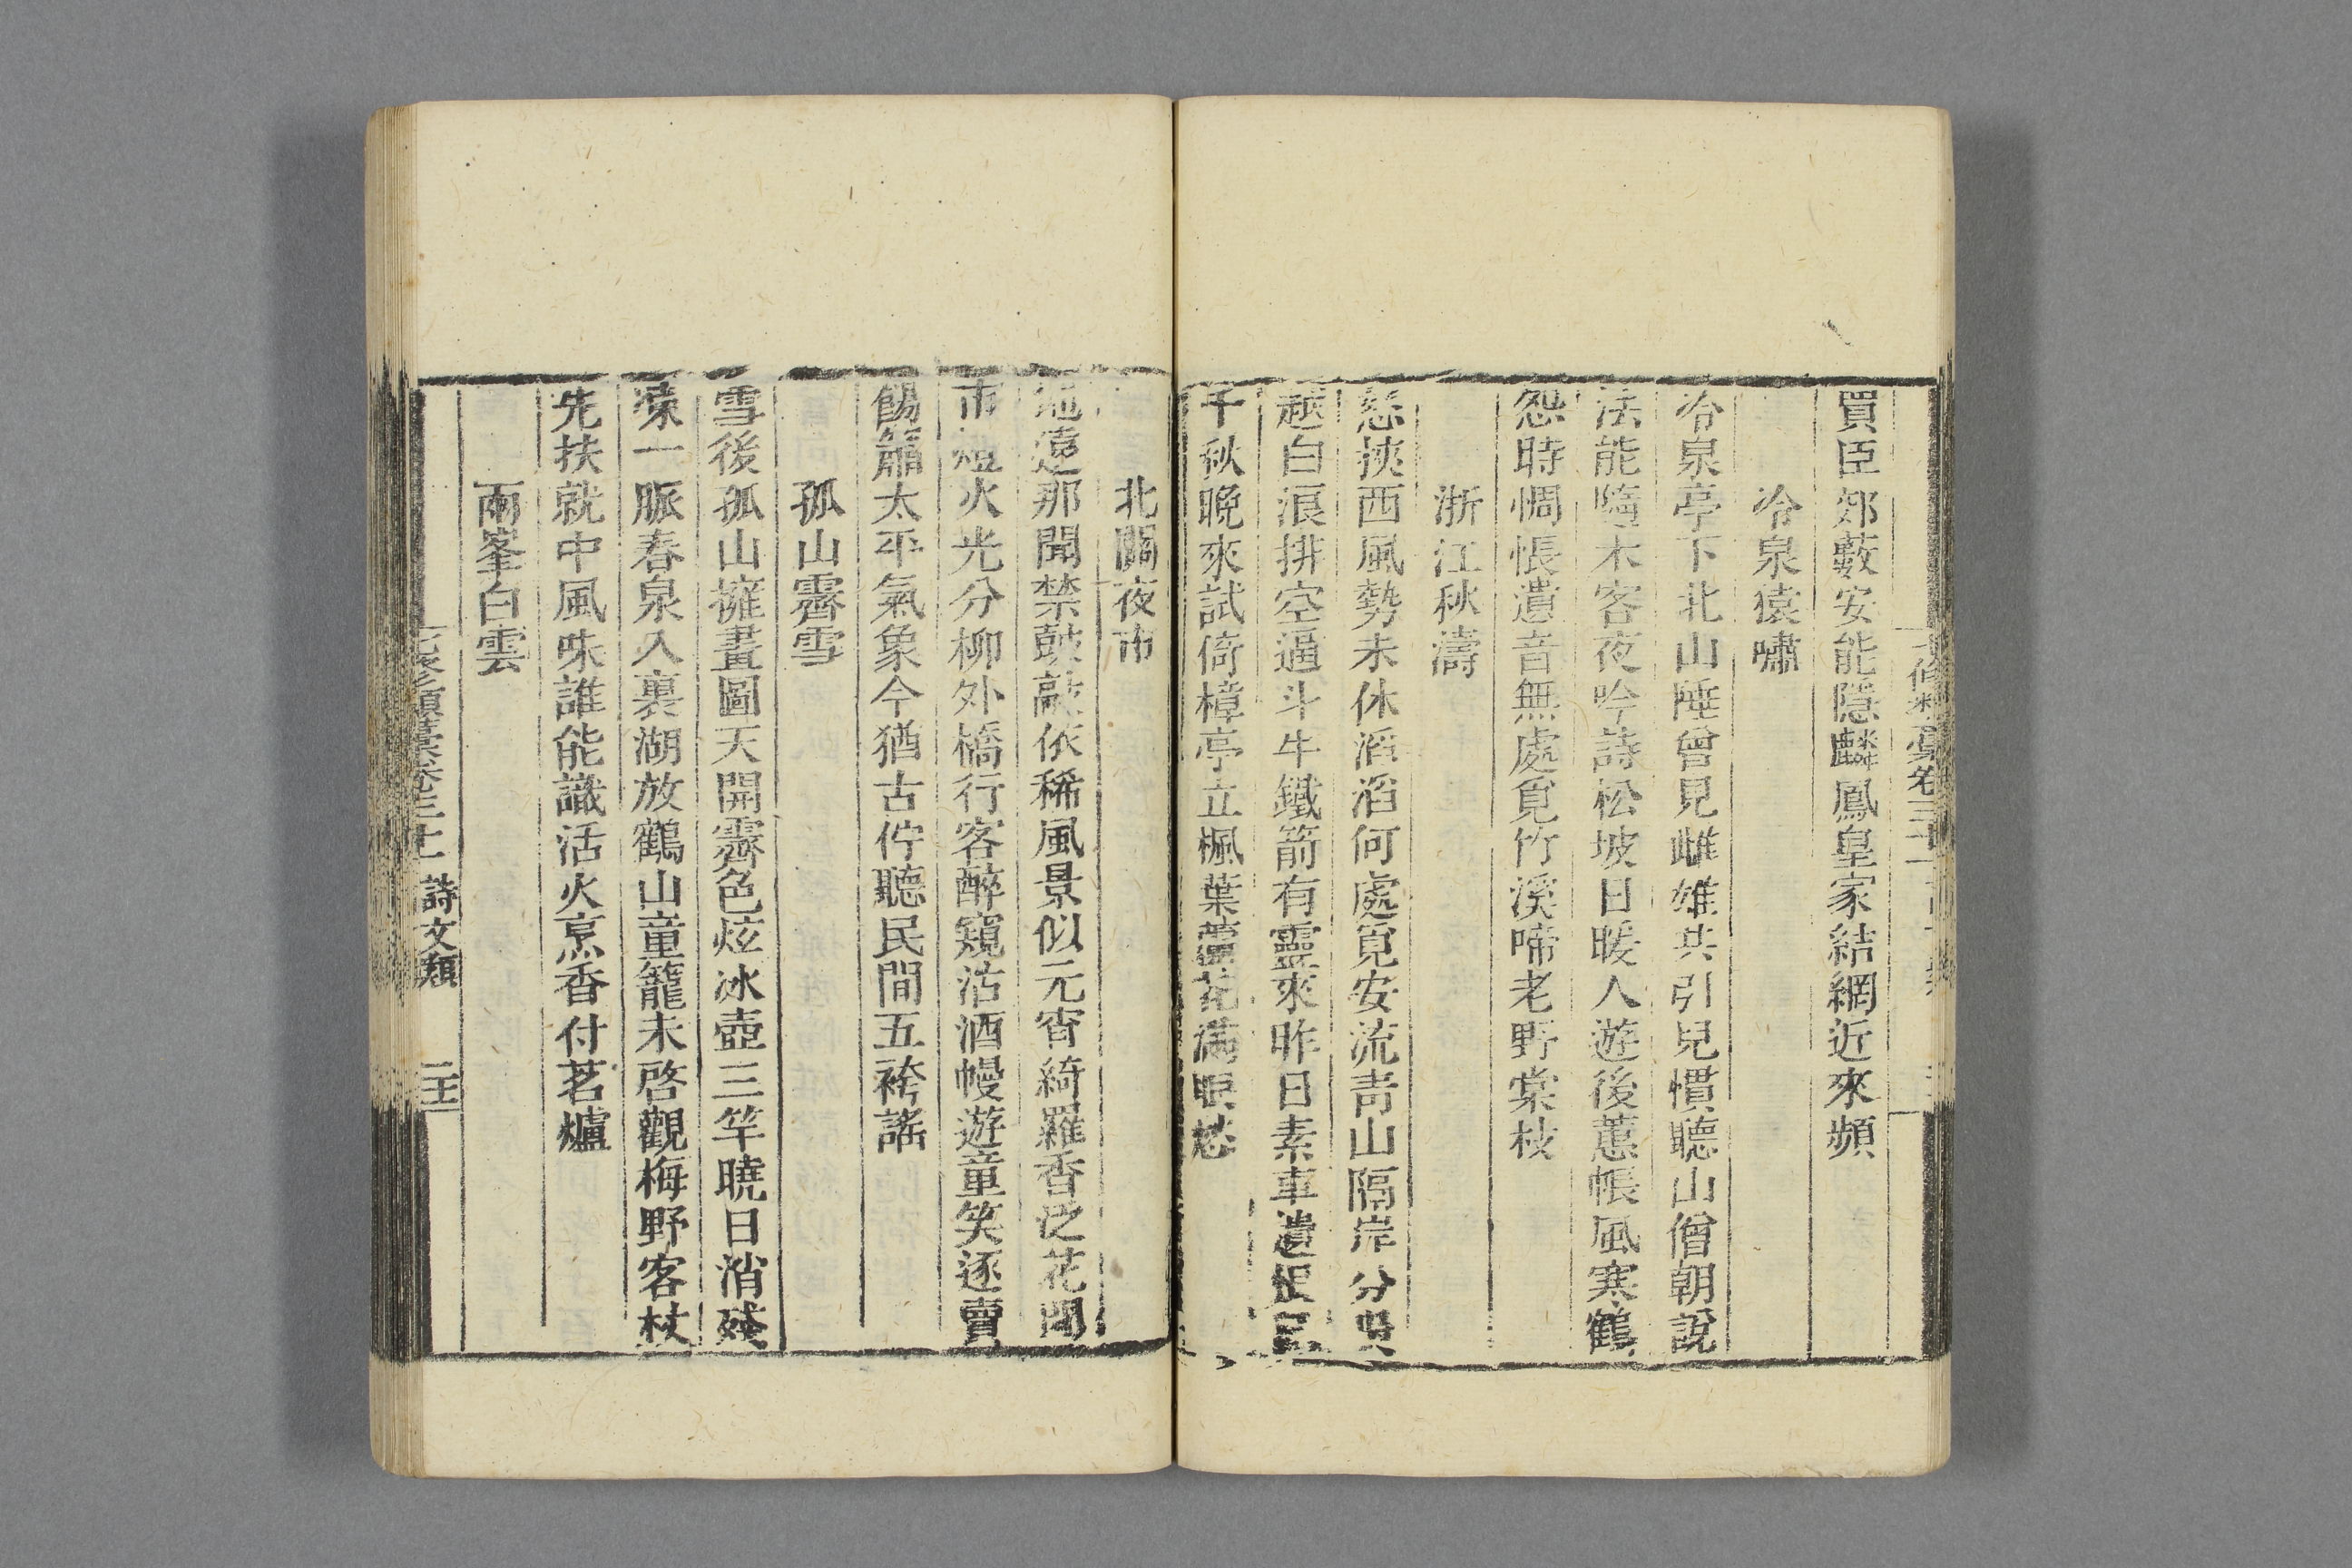 買臣郊藪安能隱麟鳳皇家結網近來頻
冷泉猿嘯
冷泉亭下北山陲曾見雌雄共引兒慣聽山僧朝說
法能隨木客夜吟詩松坡日暖人遊後蕙帳風寒鶴
怨時惆悵遺音無處覓竹溪啼老野棠枝
浙江秋濤
怒挾西風勢未休滔滔何處覓安流青山隔岸分吳
越白浪排空逼斗牛鐵箭有靈來昨日素車遺恨
千秋晚來試倚樟亭立楓葉蘆花滿眼愁
北關夜市
地遠那聞禁鼓敲依稀風景似元宵綺羅香泛花間
市燈火光分柳外橋行客醉窺沽酒幔遊童笑逐賣
餳簫太平氣象今猶古佇聽民間五袴謠
孤山霽雪
雪後孤山擁畫圖天開霽色炫冰壺三竿曉日消殘
凓一脈春泉入裏湖放鶴山童籠未啓觀梅野客杖
先扶就中風味誰能識活火烹香付茗爐
兩峯白雲
七修類藁卷三十七 詩文類